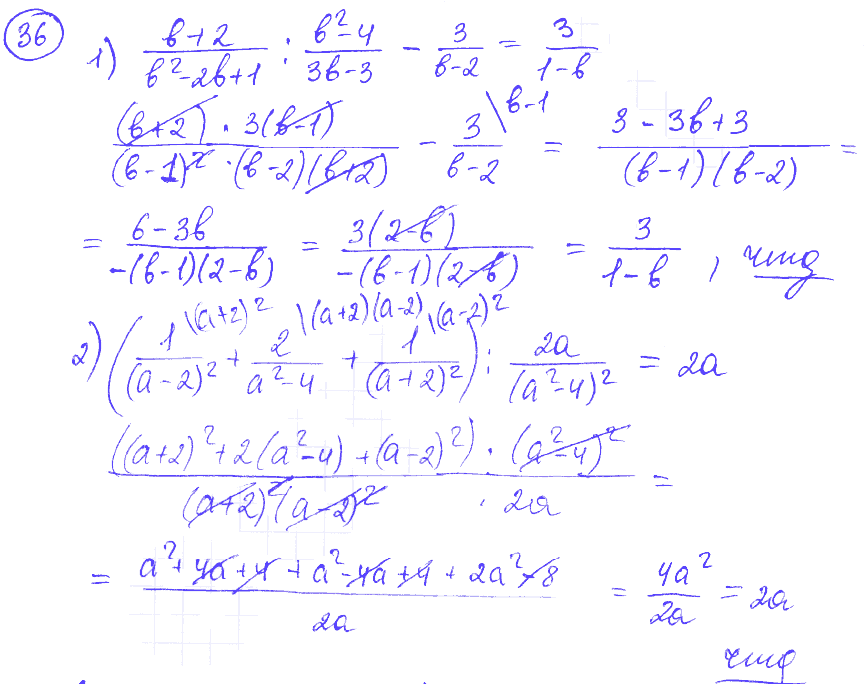 36
1) (b+2)/(b²-2b+1) : (b²-4)/(3b-3) - 3/(b-2) = 3/(1-b)
((b+2) · 3(b-1))/((b-1)² · (b-2)(b+2)) - 3/(b-2) \b-1 = (3-3b+3)/((b-1)(b-2)) =
= (6-3b)/(-(b-1)(2-b)) = (3(2-b))/(-(b-1)(2-b)) = 3/(1-b), чтд
2) (1/(a-2)² \(a+2)² + 2/(a²-4) \(a+2)(a-2) + 1/(a+2)² \(a-2)²) : 2a/(a²-4)² = 2a
(((a+2)² + 2(a²-4) + (a-2)²) · (a²-4)²)/((a+2)²(a-2)² · 2a) =
= (a²+4a+4+a²-4a+4+2a²-8)/2a = 4a²/2a = 2a
чтд